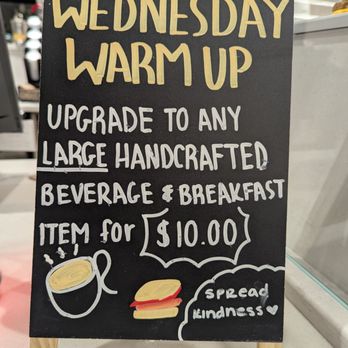 WEDNESDAY
WARM UP
UPGRADE TO ANY
LARGE HANDCRAFTED
BEVERAGE & BREAKFAST
ITEM for $10.00
SPREAD
KINDNESS ♥